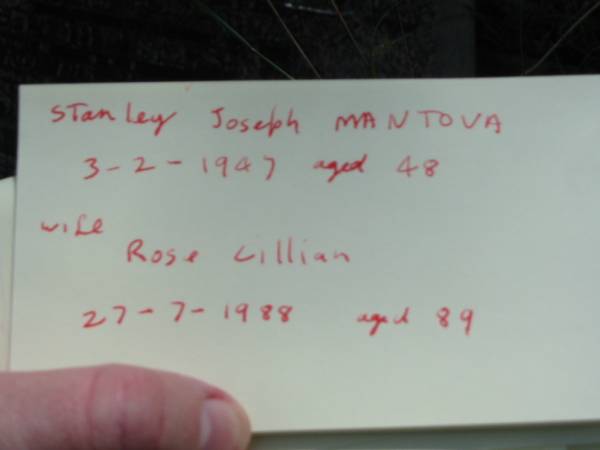 Stanley Joseph MANTOVA
3-2-1947 aged 48
wife
Rose Lillian
27-7-1988 aged 89